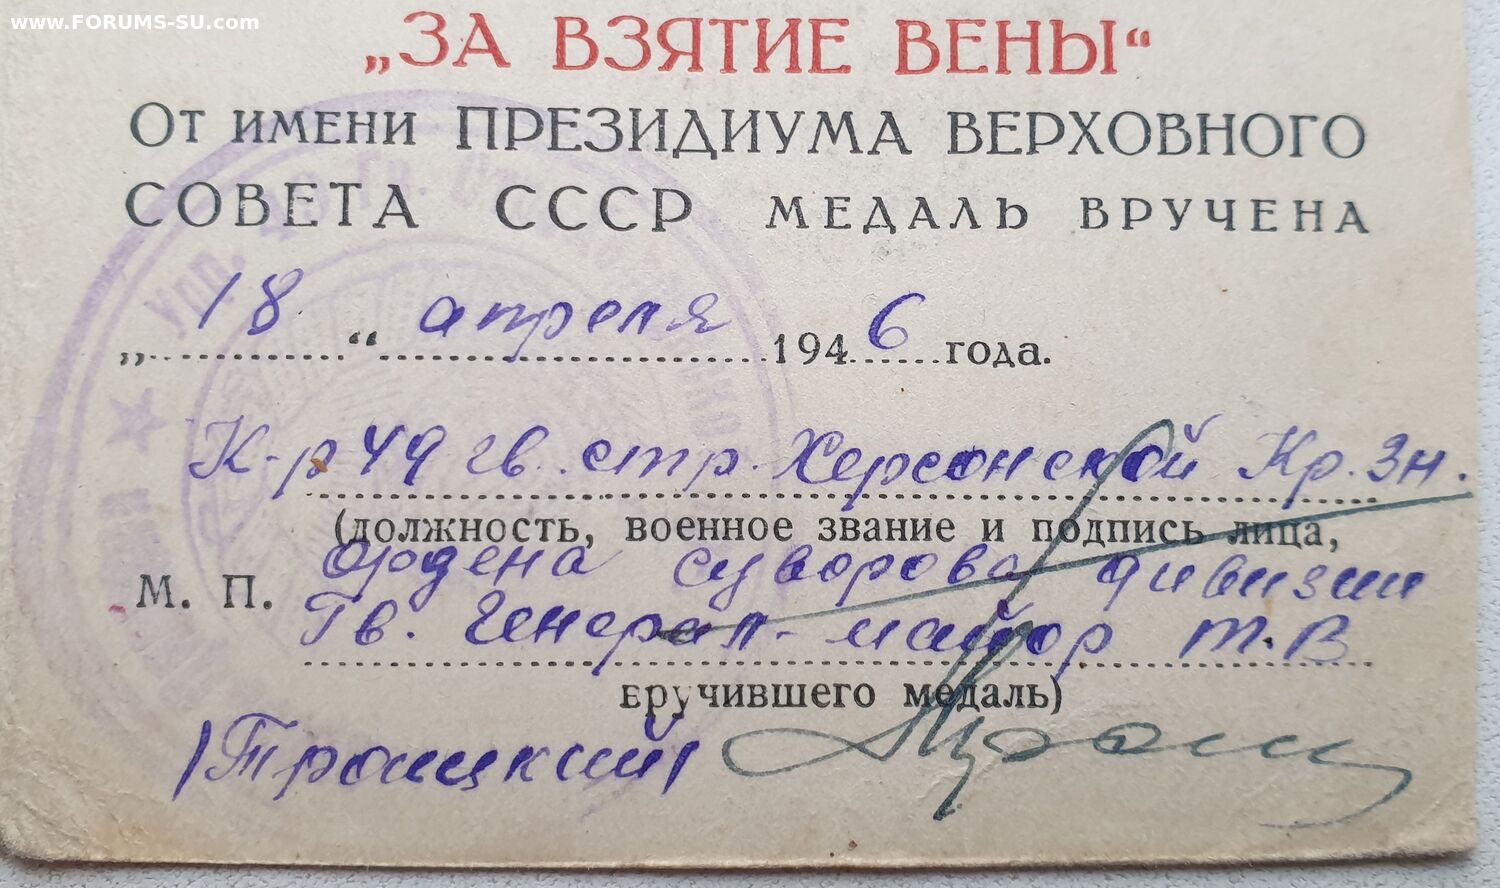 www.FORUMS-SU.com
„ЗА ВЗЯТИЕ ВЕНЫ“
От имени ПРЕЗИДИУМА ВЕРХОВНОГО
СОВЕТА СССР МЕДАЛЬ ВРУЧЕНА
„18“ апреля 1946 года.
К-р 49 гв. стр. Херсонской Кр. Зн.
(должность, военное звание и подпись лица,
ордена Суворова дивизии
М. П.
Гв. Генерал-майор т. в
вручившего медаль)
/Троицкий/